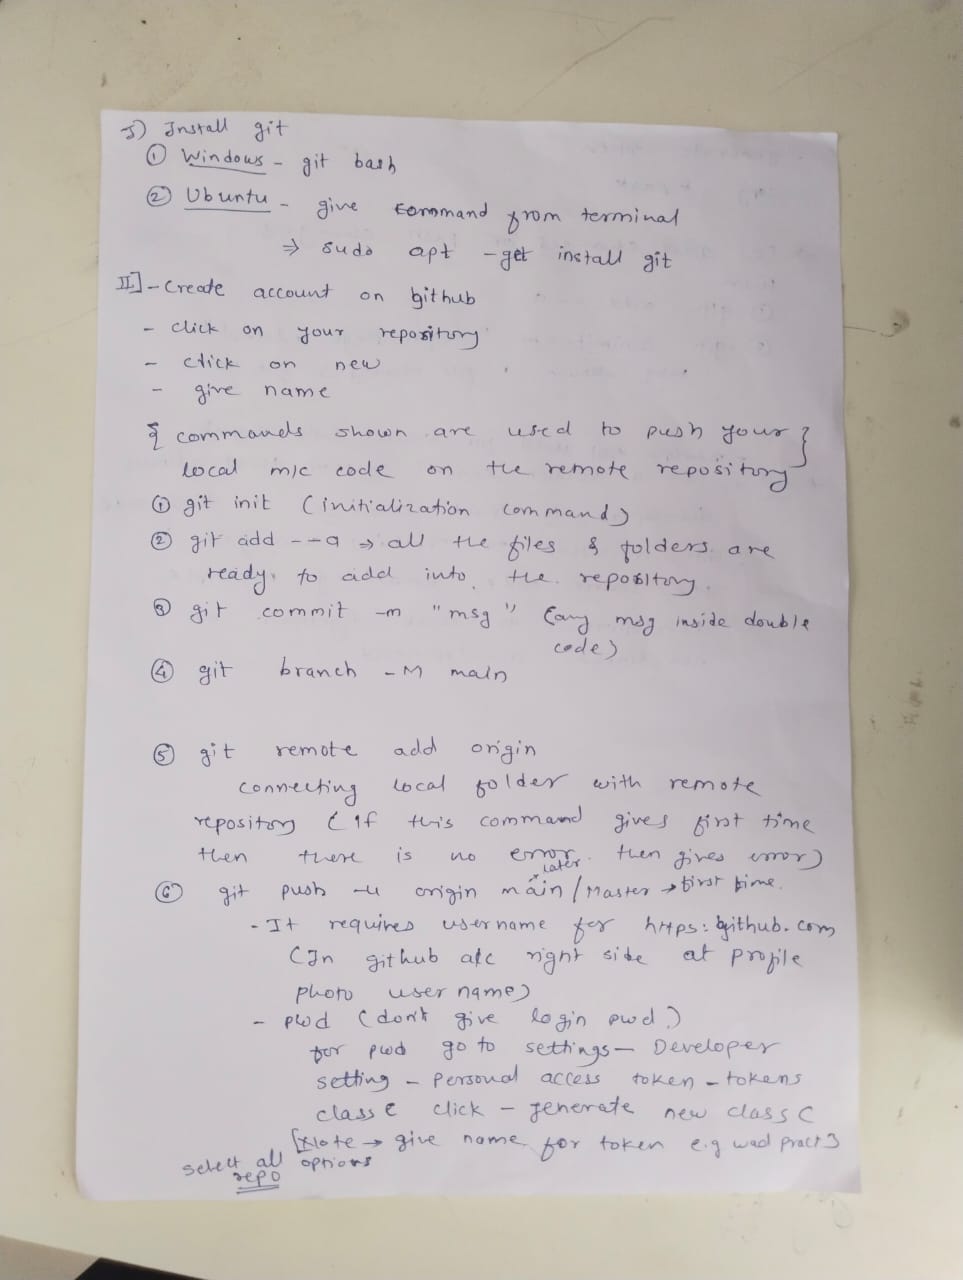 I) Install git
① Windows - git bash
② Ubuntu - give command from terminal
⇒ sudo apt -get install git
II] - Create account on github
- click on your repository
- click on new
- give name
{ commands shown are used to push your }
local m/c code on the remote repository
① git init (initialization command)
② git add --a → all the files & folders are
ready to add into the repository.
③ git commit -m "msg" (any msg inside double
code)
④ git branch -M main
⑤ git remote add origin
connecting local folder with remote
repository (if this command gives first time
then there is no error. then gives error)
later
⑥ git push -u origin main / Master → first time.
- It requires username for https: github.com
(In github a/c right side at profile
photo user name)
- pwd (don't give login pwd)
for pwd go to settings - Developer
setting - Personal access token - tokens
classc click - generate new classc
[Note → give name for token e.g wad pract 3
select all options
repo